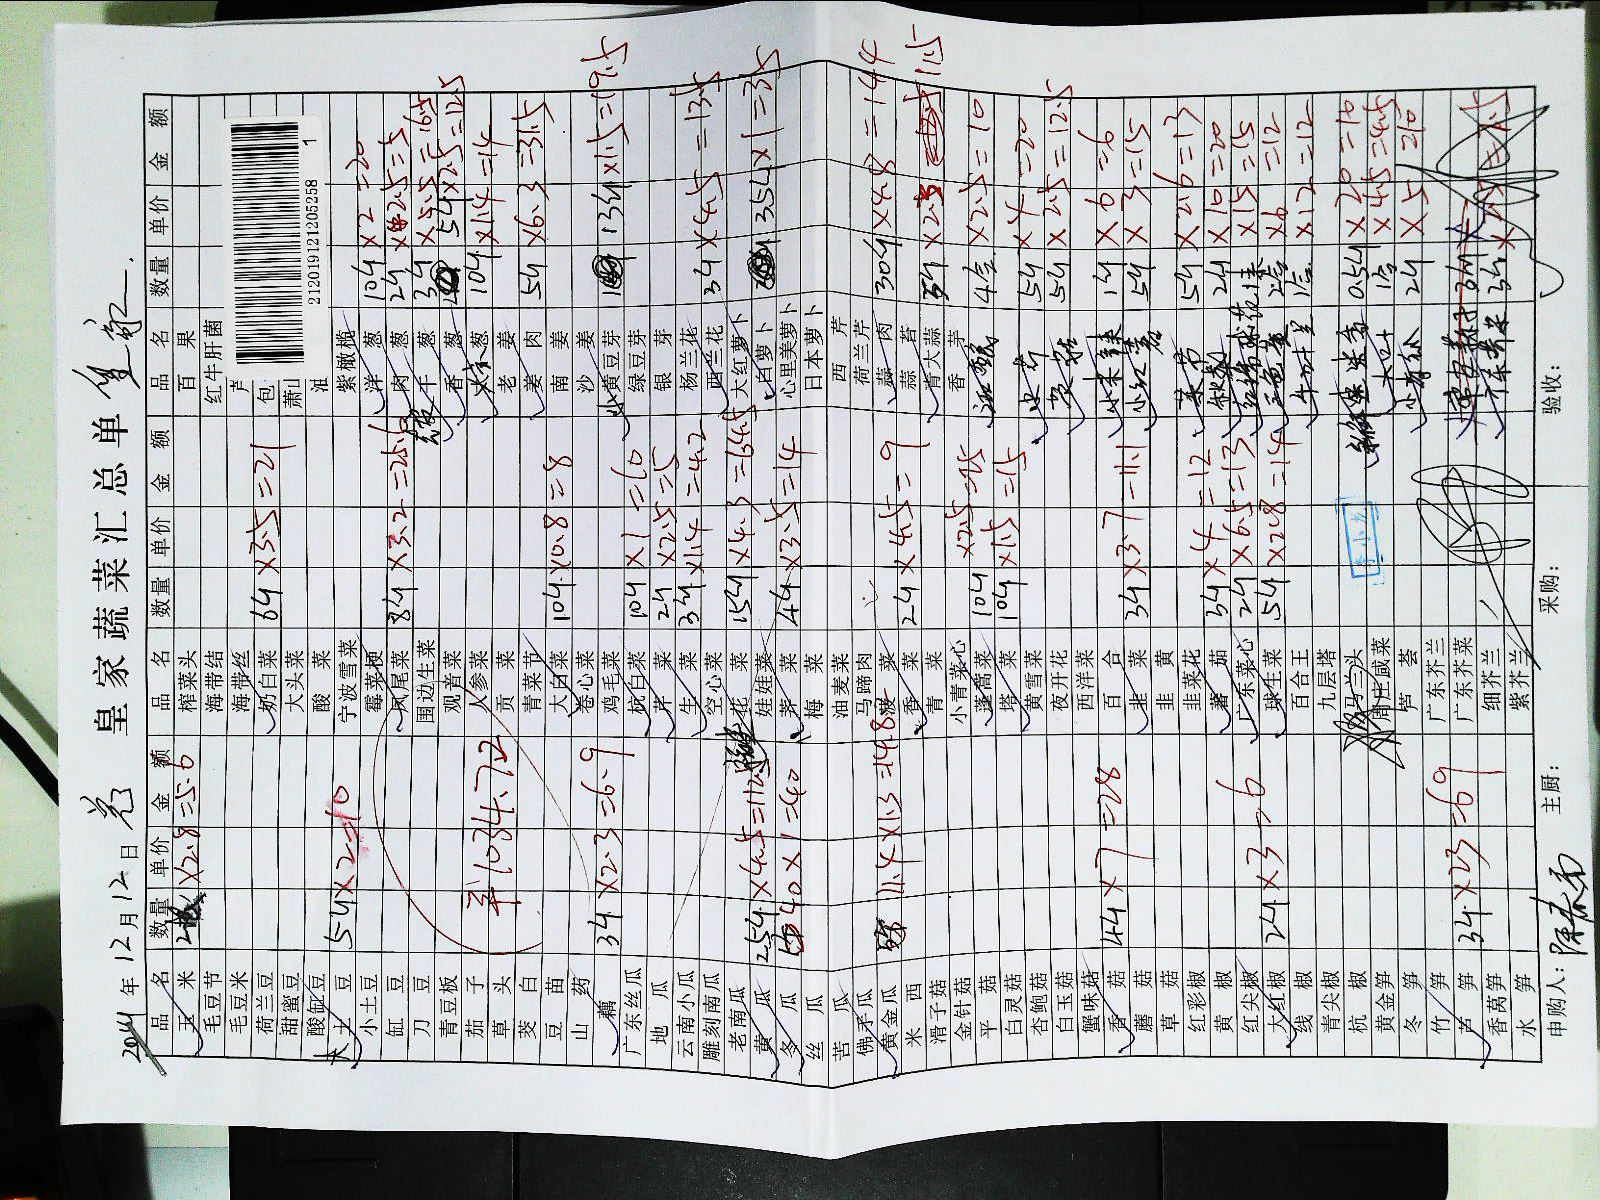 皇家蔬菜汇总单
2019年12月12日
品名 数量 单价 金额 品名 数量 单价 金额 品名 数量 单价 金额
玉米 ×2.8=5.6
毛豆节
毛豆米
荷兰豆
甜蜜豆
酸缸豆
大土豆 5斤×2=10
小土豆
缸豆
刀豆
青豆板
茄子
草头
茭白
豆苗
山药
藕 3斤×2.3=6.9
广东丝瓜
地瓜
云南小瓜
雕刻南瓜
老南瓜
黄瓜 25斤×4.5=112.5
冬瓜 40×1=40
丝瓜
苦瓜
佛矛瓜
黄金瓜 11.4×1.3=14.8
米西
滑子菇
金针菇
平菇
白灵菇
杏鲍菇
白玉菇
蟹味菇
香菇 4斤×7=28
蘑菇
草菇
红彩椒
黄椒
红尖椒
大红椒 2斤×3=6
线椒
青尖椒
杭椒
黄金笋
冬笋
竹笋
芦笋 3斤×23=69
香莴笋
水笋
1034.72
榨菜头
海带结
海带丝
奶白菜 6斤×3.5=21
大头菜
酸菜
宁波雪菜
霉菜梗
凤尾菜 8斤×3.2=25.6
围边生菜
观音菜
人参菜
贡菜
青菜节
大白菜 10斤×0.8=8
卷心菜
鸡毛菜
杭白菜 10斤×1=10
芹菜 2斤×2.5=5
生菜 3斤×1.4=4.2
空心菜
花菜 15斤×4.3=64.5
娃娃菜
荠菜 4斤×3.5=14
梅菜
油麦菜
马蹄肉
菠菜
香菜 2斤×4.5=9
青菜
小青菜心
蓬蒿菜 10斤×2.5=25
塔菜 10斤×1.5=15
黄雪菜
夜开花
西洋菜
百合
韭菜 3斤×3.7=11.1
韭黄
韭菜花
蕃茄 3斤×4=12
广东菜心 2斤×6.5=13
球生菜 5斤×2.8=14
百合王
九层塔
马兰头
周庄咸菜
芦荟
广东芥兰
广东芥菜
细芥兰
紫芥兰
百果
红牛肝菌
芦
包
萧山
油
212019121205258 1
紫橄榄
洋葱 10斤×2=20
肉葱 2斤×2.5=5
干葱 3斤×5.5=16.5
香葱 5斤×2.5=12.5
大京葱 10斤×1.4=14
老姜
姜肉 5斤×6.3=31.5
南姜
沙姜
小黄豆芽 13斤×1.5=19.5
绿豆芽
银芽
杨兰花
西兰花 3斤×4.5=13.5
大红萝卜
白萝卜 35斤×1=35
心里美萝卜
日本萝卜
西芹
荷兰芹
蒜肉 30斤×4.8=144
蒜苔
青大蒜 11.5
香芋
4盒×2.5=10
5斤×4=20
5斤×2.5=12.5
1斤×6=6
小红薯 5斤×3=15
5斤×2.6=13
2斤×10=20
1棵×15=15
2盒×6=12
1盒×12=12
0.5斤×20=10
1台×4.5=4.5
2斤×5=10
申购人： 主厨： 采购： 验收：